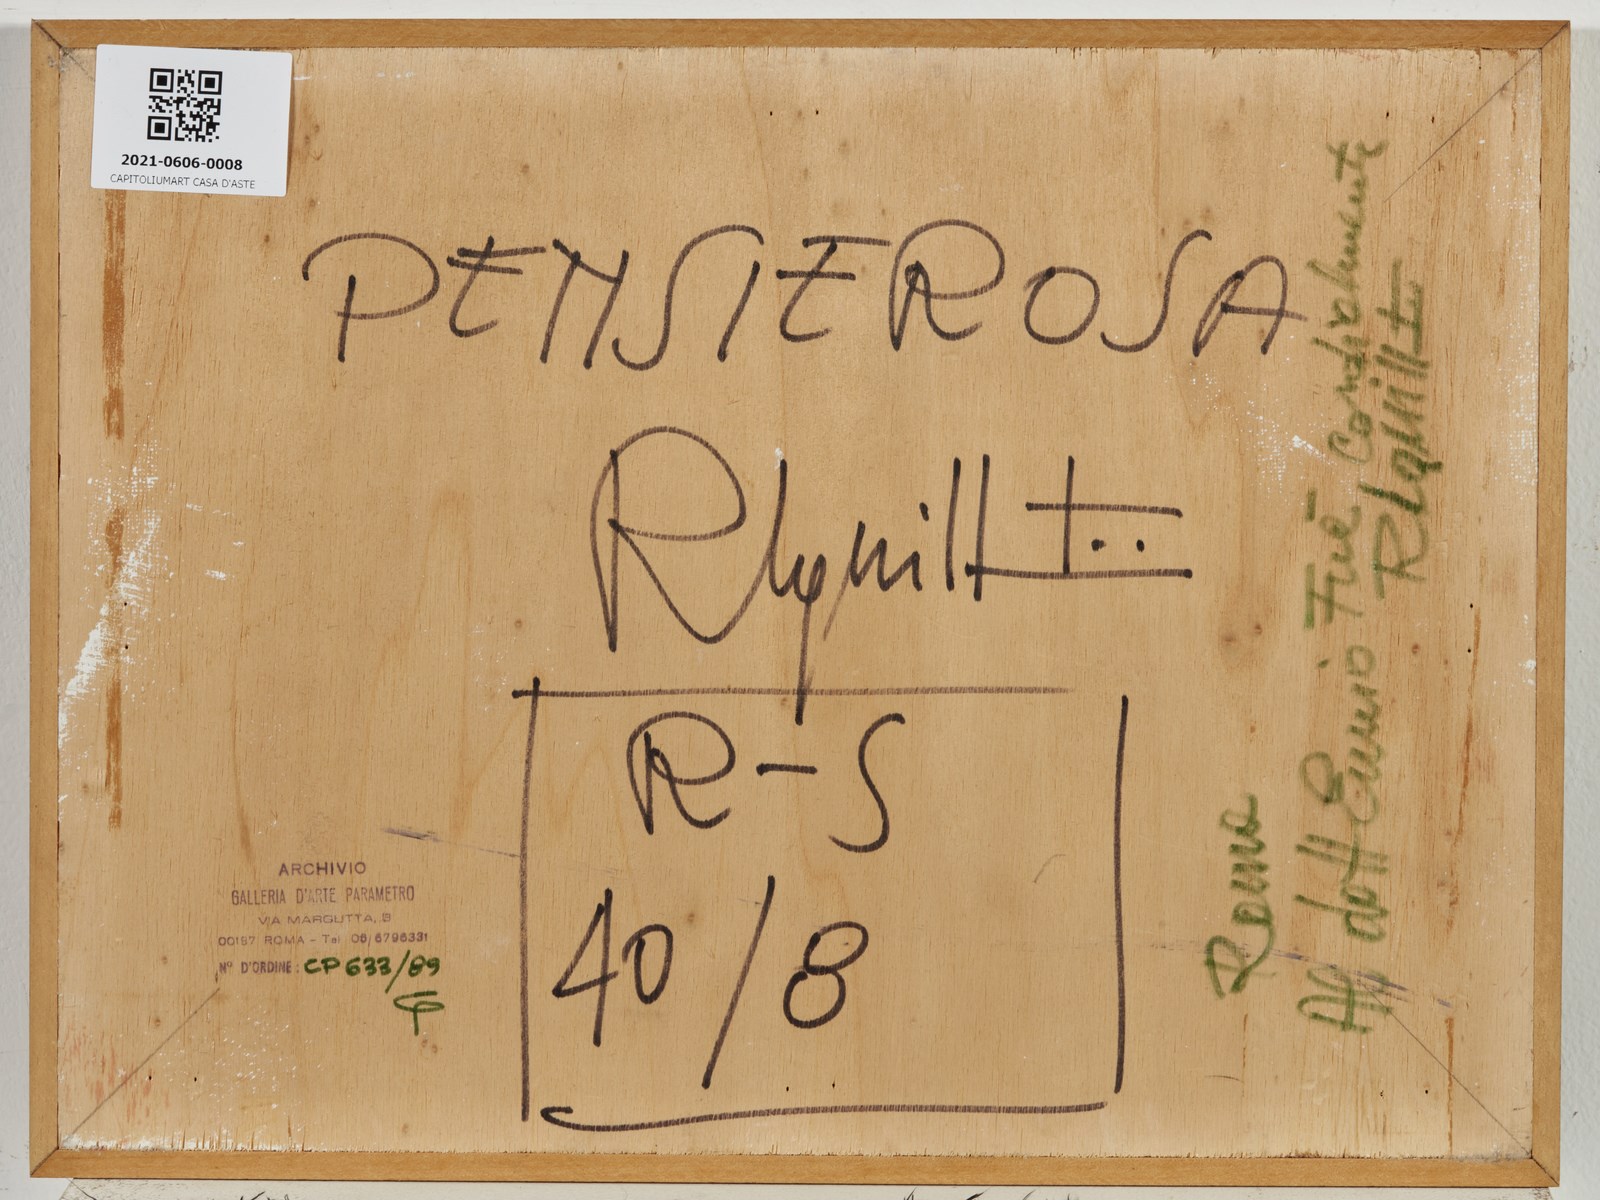 2021-0606-0008
CAPITOLIUMART CASA D'ASTE
PENSIEROSA
R-S
40/8
ARCHIVIO
GALLERIA D'ARTE PARAMETRO
VIA MARGUTTA, 8
00187 ROMA - Tel 06/6796331
N° D'ORDINE: CP 633/89
Roma
Al dott Ennio
Cordialmente